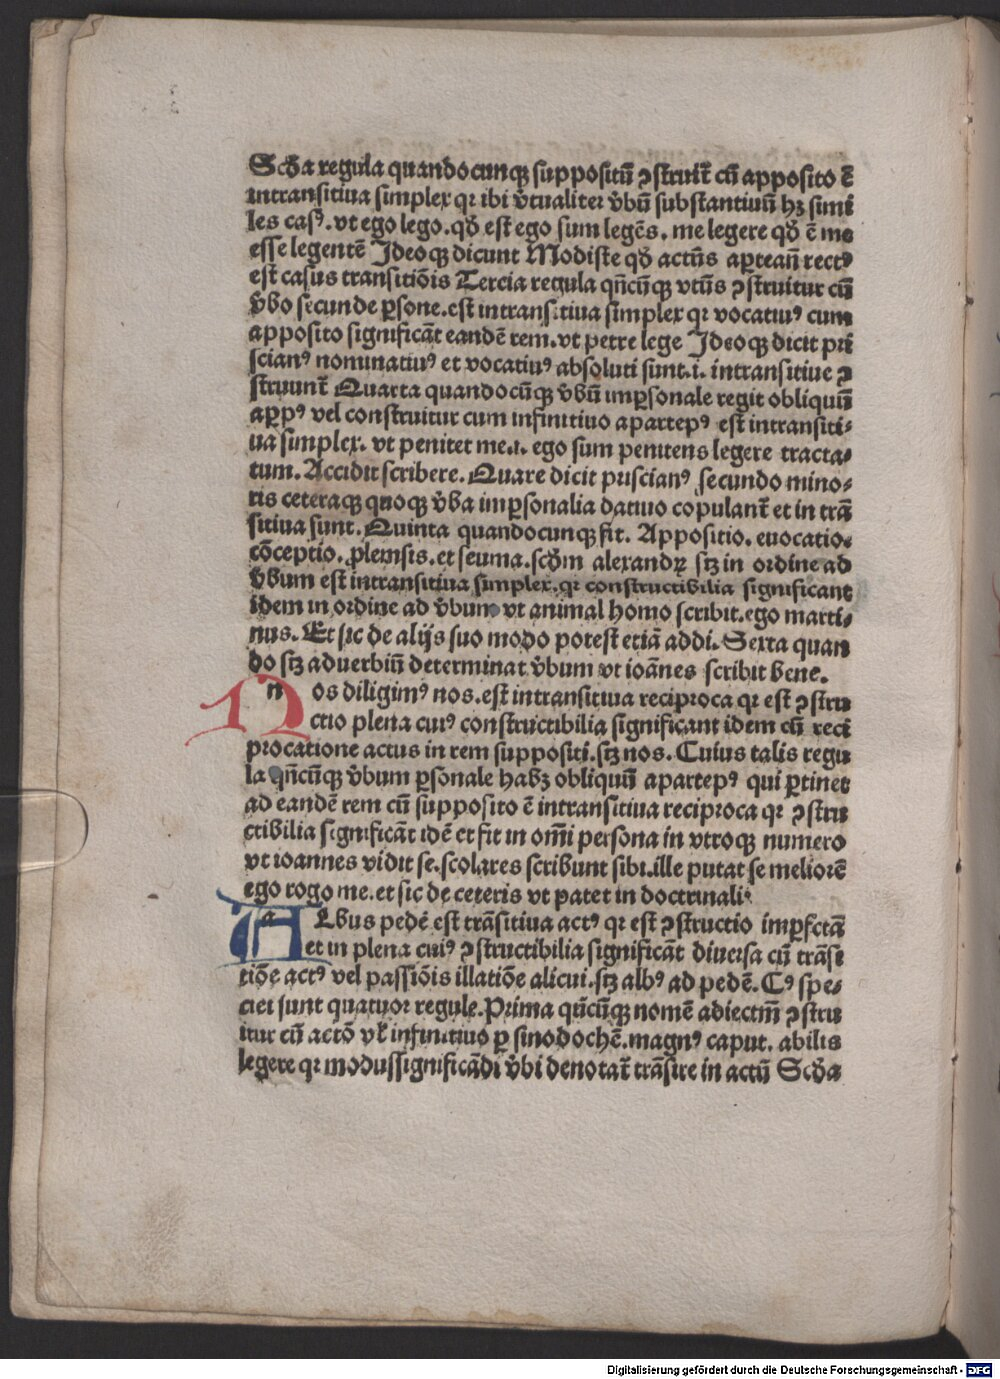 Scḋa regula quandocunqꝫ suppositū ꝯstruit᷑ cū apposito ē
intransitiua simplex qꝛ ibi v̓tualiter v̓bū substantiuū hꝫ simi
les casꝰ. vt ego lego. qḋ est ego sum legēs. me legere qḋ ē me
esse legentē Ideoqꝫ dicunt Modiste qḋ actūs aꝑteañ rectꝰ
est casus transitiōis Tercia regula qn̄cūqꝫ vtūs ꝯstruitur cū
v̓bo secunde ꝑsone. est intransitiua simplex qꝛ vocatiuꝰ cum
apposito significāt eandē rem. vt petre lege Ideoqꝫ dicit pri
scianꝰ nominatiuꝰ et vocatiuꝰ absoluti sunt .i. intransitiue ꝯ
struunt᷑ Quarta quandocūqꝫ v̓bū imꝑsonale regit obliquū
aꝑpꝰ vel construitur cum infinitiuo apartepꝰ est intransiti⸗
ua simplex. vt penitet me .i. ego sum penitens legere tracta⸗
tum. Accidit scribere. Quare dicit priscianꝰ secundo mino⸗
ris ceteraqꝫ quoqꝫ v̓ba imꝑsonalia datiuo copulant᷑ et in trā
sitiua sunt. Quinta quandocunqꝫ fit. Appositio. euocatio.
cōceptio. ꝓlemsis. et seuma. scḋm alexandꝝ sꝫ in ordine ad
v̓bum est intransitiua simplex. qꝛ constructibilia significant
idem in ordine ad v̓bum vt animal homo scribit. ego marti⸗
nus. Et sic de alijs suo modo potest etiā addi. Sexta quan
do sꝫ aduerbiū determinat v̓bum vt ioānes scribit bene.
Nos diligimꝰ nos. est intransitiua reciproca qꝛ est ꝯstru
ctio plena cuiꝰ constructibilia significant idem cū reci
procatione actus in rem suppositi. sꝫ nos. Cuius talis regu
la qn̄cūqꝫ v̓bum ꝑsonale habꝫ obliquū apartepꝰ qui ꝑtinet
ad eandē rem cū supposito ē intransitiua reciproca qꝛ ꝯstru
ctibilia significāt idē et fit in om̄i persona in vtroqꝫ numero
vt ioannes vidit se. scolares scribunt sibi. ille putat se meliorē
ego rogo me. et sic de ceteris vt patet in doctrinali.
Albus pedē est trāsitiua actꝰ qꝛ est ꝯstructio imꝑfctā
et in plena cuiꝰ ꝯstructibilia significāt diuersa cū trāsi
tiōe actꝰ vel passiōis illatiōe alicui. sꝫ albꝰ ad pedē. Cꝰ spe⸗
ciei sunt quatuor regule. Prima qn̄cūqꝫ nomē adiectm̄ ꝯstru
itur cū actō vl̓ infinitiuo ꝑ sinodochē. magnꝰ caput. abilis
legere qꝛ modus significādi v̓bi denotat᷑ trāsire in actū Scḋa
Digitalisierung gefördert durch die Deutsche Forschungsgemeinschaft - DFG